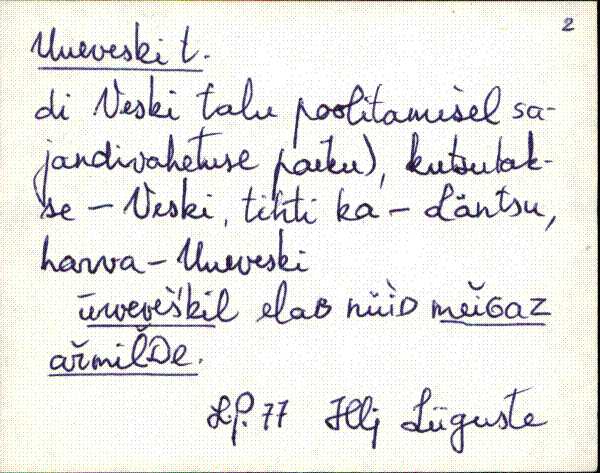 2
Uueveski t.
di Veski talu poolitamisel sa-
jandivahetuse paiku), kutsutak-
se – Veski, tihti ka – Läntsu,
harva – Uueveski
ūvveveškil elaʙ nüi̯ᴅ
ar̆milᴅe.
L.P. 77 Hlj Lüguste